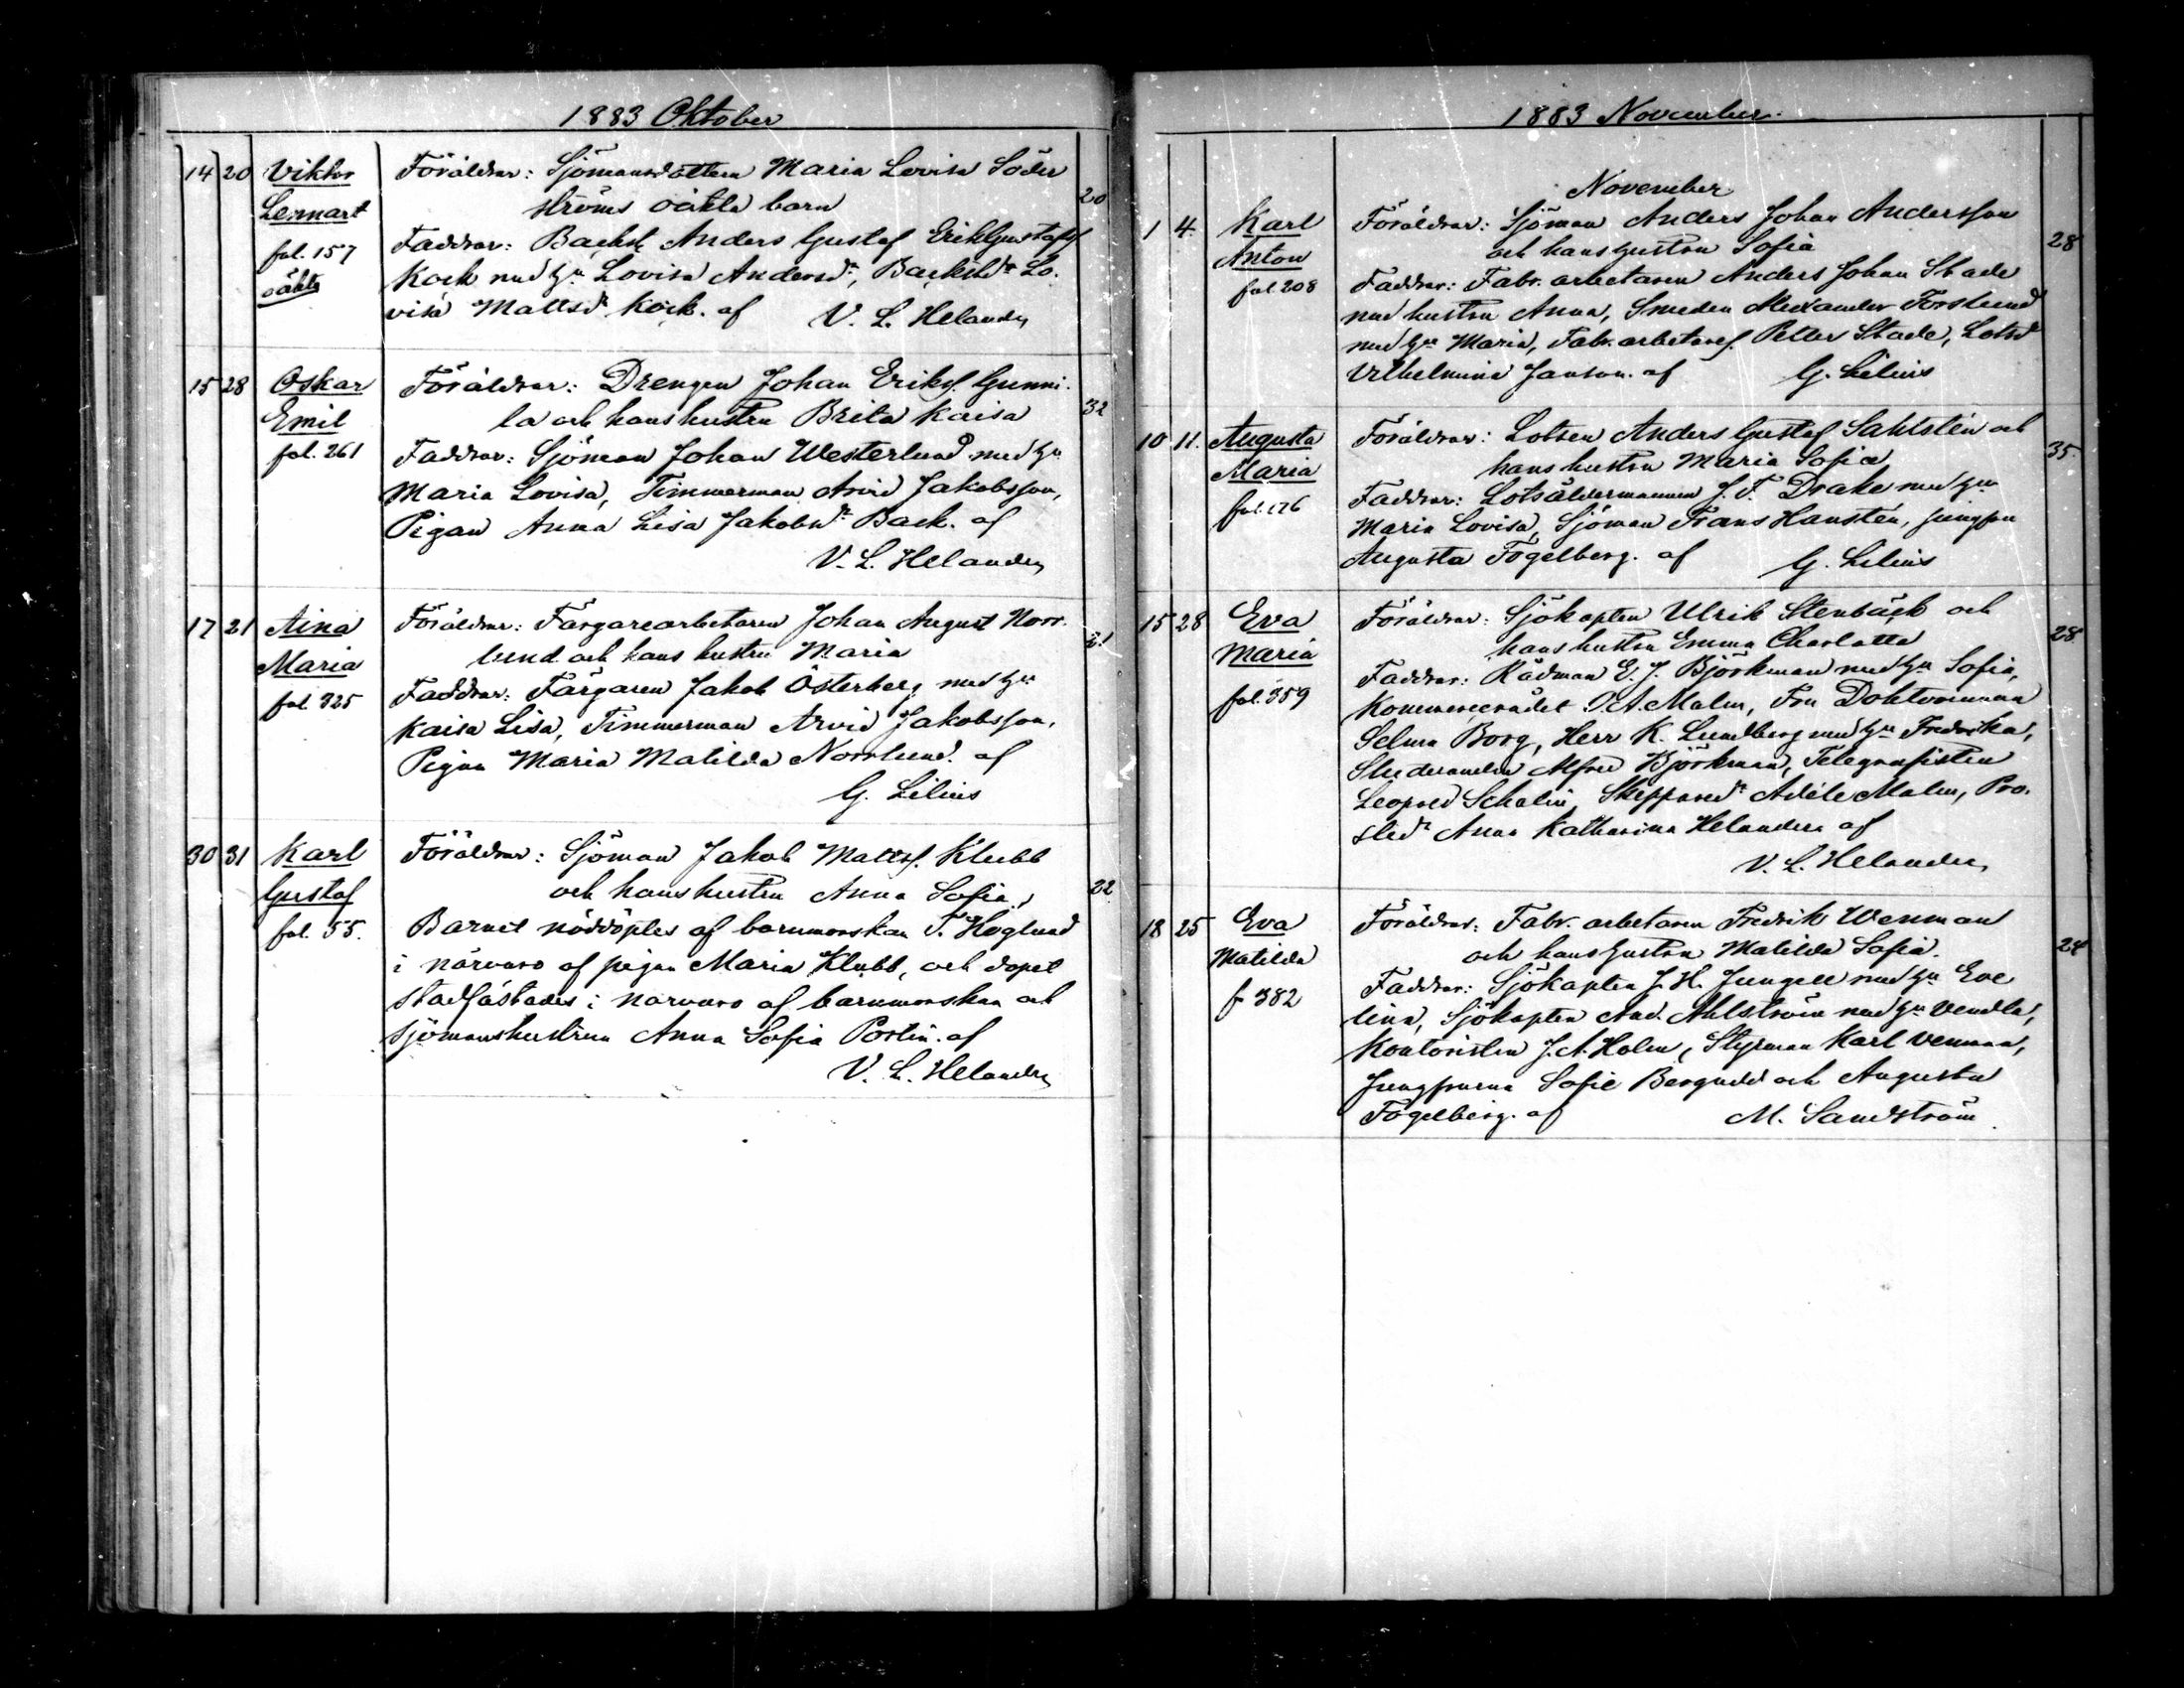 1883 Oktober
14 20 Viktor Föräldrar: Sjömansdottern Maria Lovisa Söder
Lennart ströms oäkta barn 20
fol. 157 Faddrar: Anders Gustaf Erik Gustafsf
oäkta Kock med hu Lovisa Andersd:, Lo.
visa Mattsd. Kock. af V. L. Helander
15 28 Oskar Föräldrar: Drengen Johan Eriksf. Gunni.
Emil la och hans hustru Brita Kaisa 32
fol. 261 Faddrar: Sjöman Johan Westerlund med hu
Maria Lovisa, Timmerman Arvid Jakobsson,
Pigan Anna Lisa Jakobsdr Back. af
V. L. Helander
17 21 Aina Föräldrar: Färgarearbetaren Johan August Norr.
Maria lund och hans hustru Maria 21
fol. 325 Faddrar: Färgaren Jakob Österberg med hu
Kaisa Lisa, Timmerman Arvid Jakobsson,
Pigan Maria Matilda Norrlund. af
G. Lilius
30 31 Karl Föräldrar: Sjöman Jakob Mattsf. Klubb
Gustaf och hans hustru Anna Sofia, 22
fol. 55. Barnet nöddöptes af barnmorskan T. Höglund
i närvaro af pigan Maria Klubb, och dopet
stadfästades i närvaro af barnmorskan och
sjömanshustrun Anna Sofia Portin. af
V. L. Helander
1883 November.
November
1 4. Karl Föräldrar: Sjöman Anders Johan Andersson
Anton och hans hustru Sofia 28
fol. 208 Faddrar: Fabr. arbetaren Anders Johan Stade
med hustru Anna, Smeden Alexander Forslund
med hu Maria, Fabr. arbetaref. Petter Stade, Lotsd
Vilhelmina Janson. af G. Lilius
10 11. Augusta Föräldrar: Lotsen Anders Gustaf Sahlstén och
Maria hans hustru Maria Sofia 35.
fol. 176 Faddrar: Lotsåldermannen J. F. Drake med hu
Maria Lovisa, Sjöman Frans Hanstén, jungfru
Augusta Fogelberg. af G. Lilius
15 28 Eva Föräldrar: Sjökapten Ulrik Stenbäck och
Maria hans hustru Emma Charlotta 28
fol. 359 Faddrar: Rådman E. J. Björkman med hu Sofia,
Kommerserådet P. A. Malm, Fru Doktorinnan
Selma Borg, Herr K. Lundberg med hu Fredrika,
Studeranden Alfred Björkman, Telegrafisten
Leopold Schalin, Skepparedr Adéle Malm, Pro.
stedr Anna Katharina Helander af
V. L. Helander
18 25 Eva Föräldrar: Fabr. arbetaren Fredrik Wenman
Matilda och hans hustru Matilda Sofia. 24
f. 382 Faddrar: Sjökapten J. H. Jungell med hu Eve
lina, Sjökapten And. Ahlström med hu Vendla,
Kontoristen J. A. Holm, Styrman Karl Venman,
Jungfrurna Sofie och Augusta
Fogelberg. af M. Sandström